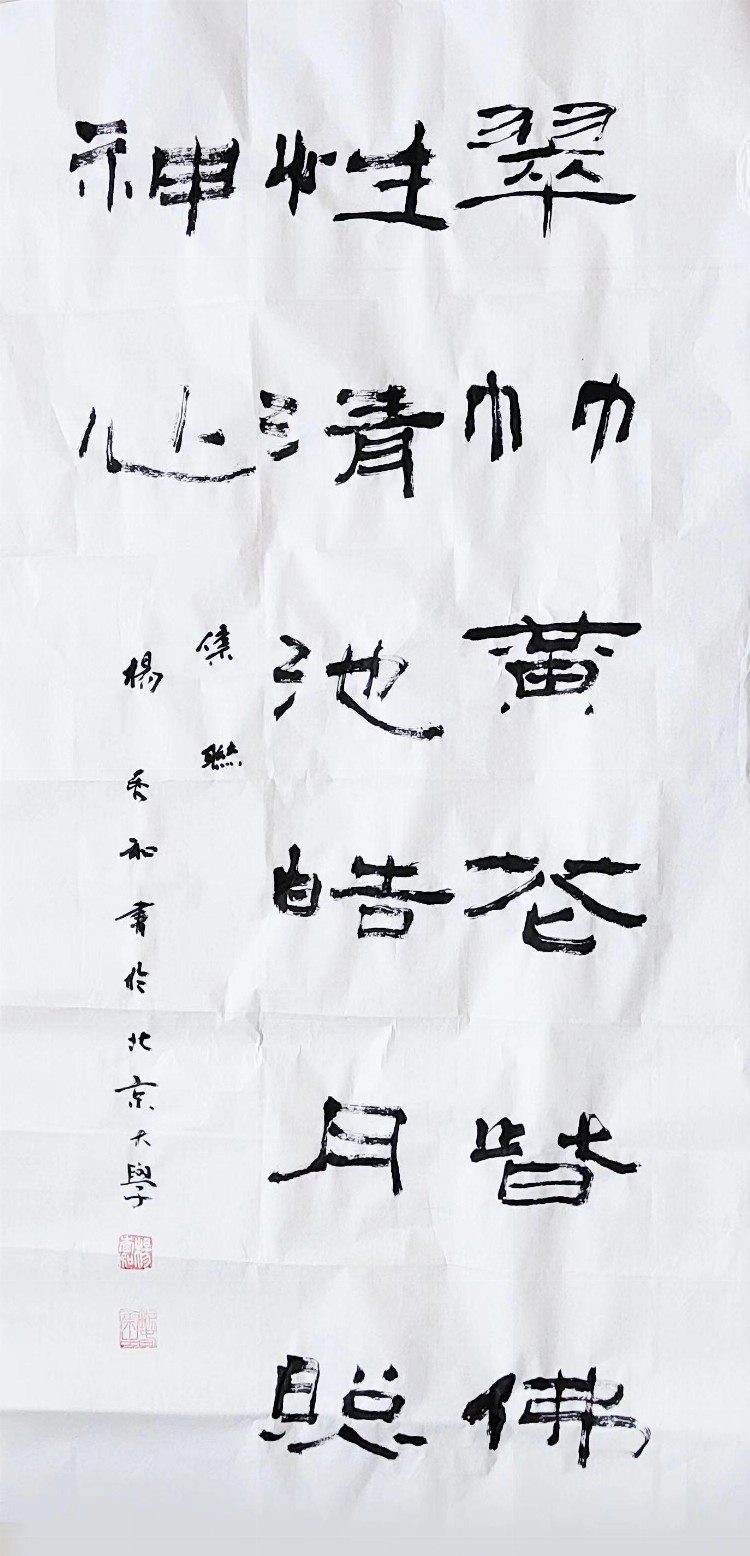 翠竹黃花皆佛
性清池皓月照
神心
集聯
楊秀和書於北京大學